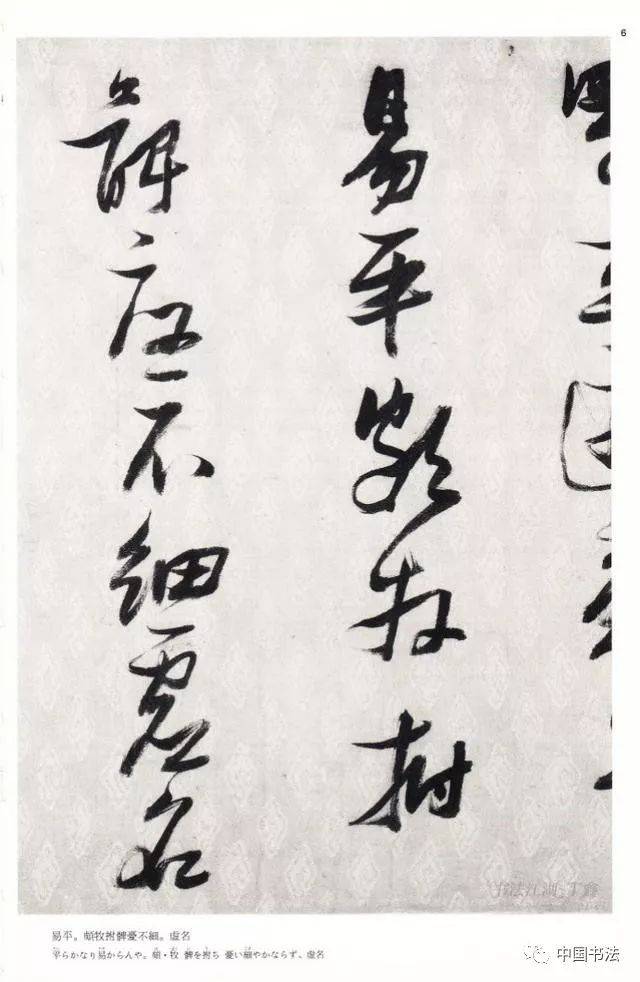 6
易平頗牧拊
髀憂不細虛名
书法江湖
易平。頗牧拊髀憂不細。虚名
平らかなり易からんや。頗・牧 髀を拊ち 憂い細やかならず、虚名
中国书法